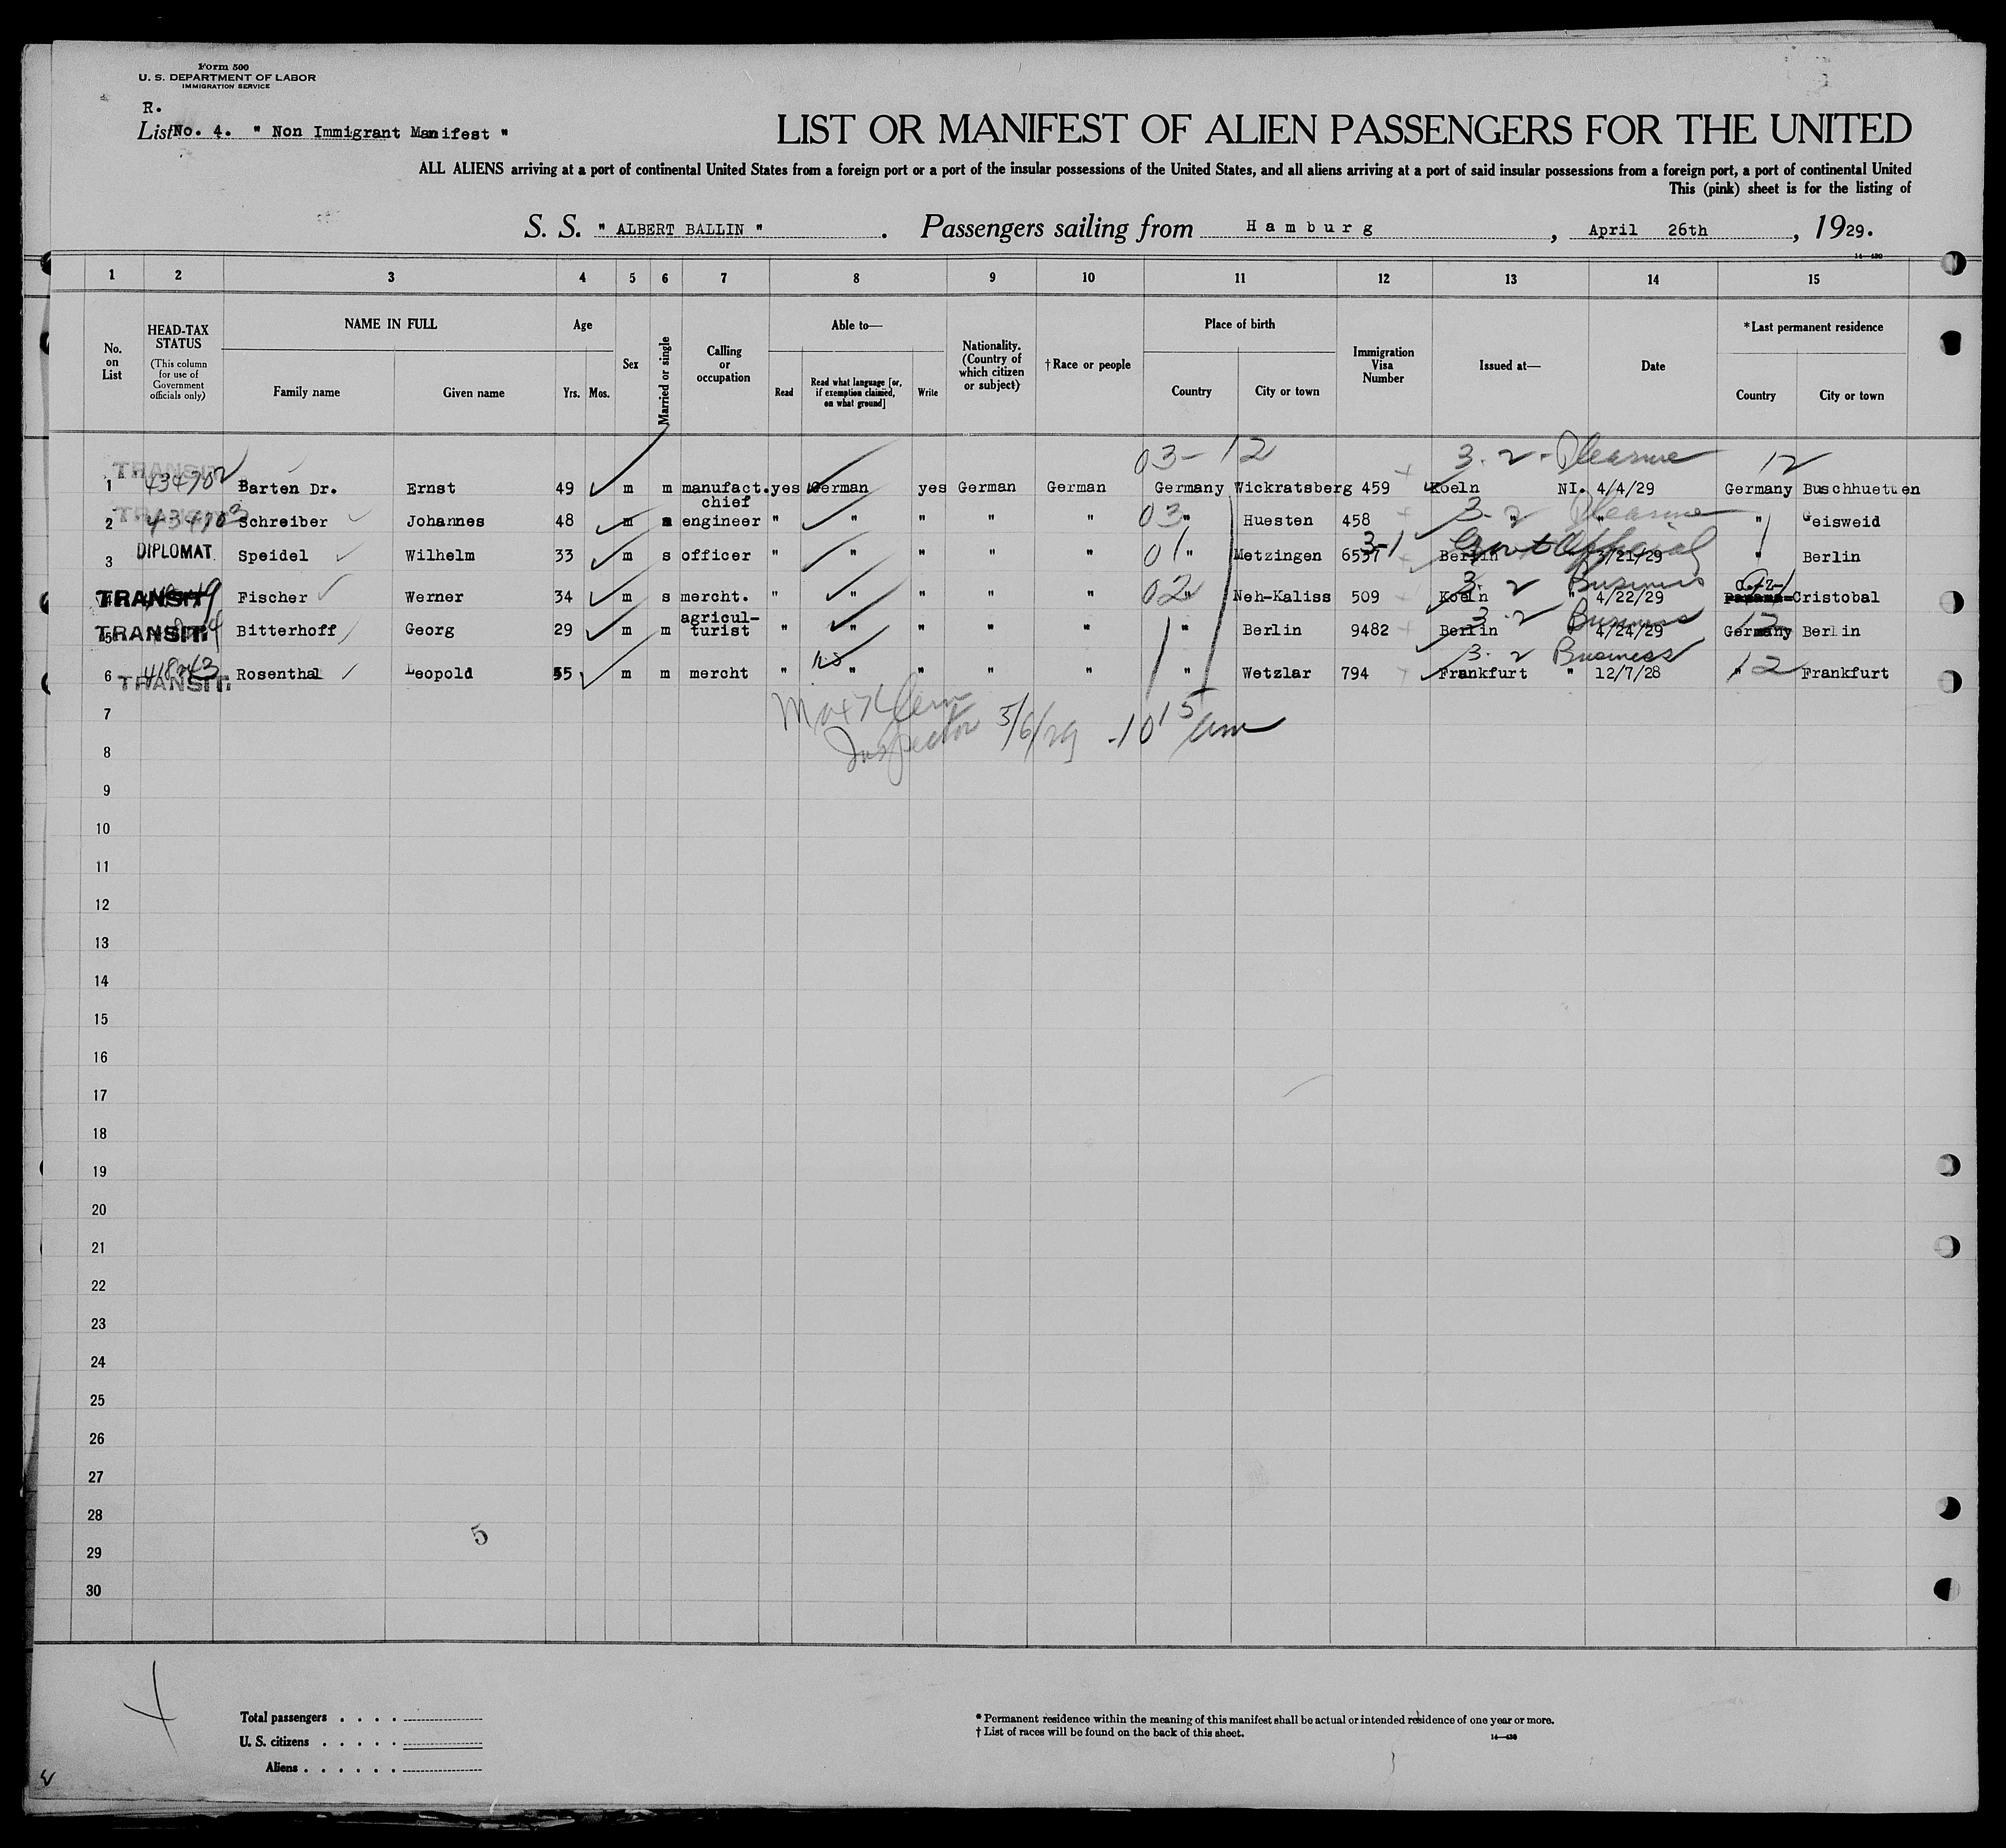 Form 500
U. S. DEPARTMENT OF LABOR
IMMIGRATION SERVICE
R.
List No. 4. " Non Immigrant Manifest "
LIST OR MANIFEST OF ALIEN PASSENGERS FOR THE UNITED
ALL ALIENS arriving at a port of continental United States from a foreign port or a port of the insular possessions of the United States, and all aliens arriving at a port of said insular possessions from a foreign port, a port of continental United
This (pink) sheet is for the listing of
S. S. " ALBERT BALLIN ". Passengers sailing from Hamburg, April 26th, 1929.
14—430
1 2 3 4 5 6 7 8 9 10 11 12 13 14 15
No. on List
HEAD-TAX STATUS (This column for use of Government officials only)
NAME IN FULL
Family name Given name
Age
Yrs. Mos.
Sex
Married or single
Calling or occupation
Able to—
Read Read what language [or, if exemption claimed, on what ground] Write
Nationality. (Country of which citizen or subject)
†Race or people
Place of birth
Country City or town
Immigration Visa Number
Issued at—
Date
*Last permanent residence
Country City or town
03-12 3-2- Pleasure 12
TRANSIT
1 434702 Barten Dr. Ernst 49 m m manufact. yes German yes German German Germany Wickratsberg 459 Koeln NI. 4/4/29 Germany Buschhuetten
TRANSIT 03 3-2 Pleasure
2 434703 Schreiber Johannes 48 m chief engineer " " " " " " Huesten 458 " " " " Geisweid
01 3-1 Govt Official
3 DIPLOMAT Speidel Wilhelm 33 m s officer " " " " " " Metzingen 6537 Berlin " 3/21/29 " Berlin
02 3-2 Business C.Z-
4 TRANSIT Fischer Werner 34 m s mercht. " " " " " " Neh-Kaliss 509 Koeln " 4/22/29 Panama-Cristobal
3-2 Business 12
5 TRANSIT. Bitterhoff Georg 29 m m agricul-turist " " " " " " Berlin 9482 Berlin " 4/24/29 Germany Berlin
3-2 Business 12
6 418743 Rosenthal Leopold 55 m m mercht " " " " " " Wetzlar 794 Frankfurt " 12/7/28 " Frankfurt
TRANSIT.
7
Inspector 5/6/29 -10 15 am
8
9
10
11
12
13
14
15
16
17
18
19
20
21
22
23
24
25
26
27
28
5
29
30
Total passengers
U. S. citizens
Aliens
* Permanent residence within the meaning of this manifest shall be actual or intended residence of one year or more.
† List of races will be found on the back of this sheet.
14—430